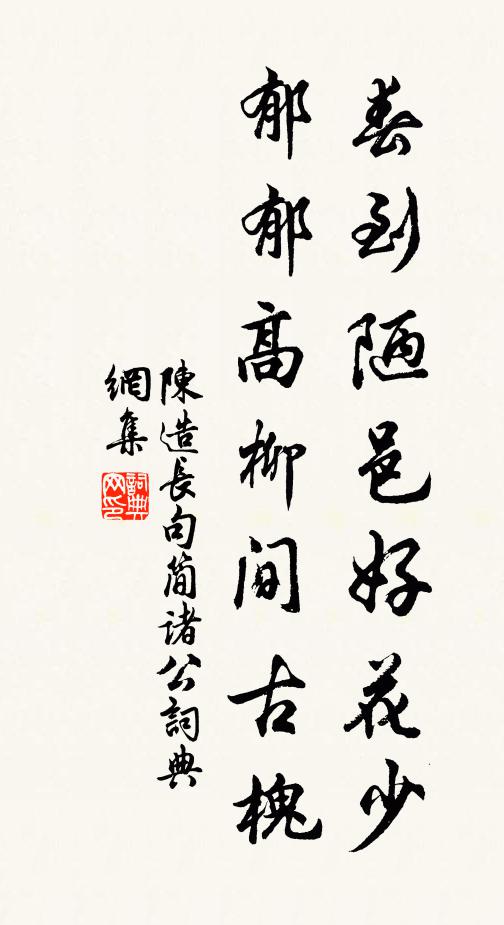 春到陋邑好花少
郁郁高柳間古槐
陳造長句简諸公詞典
網集
詞典
网印